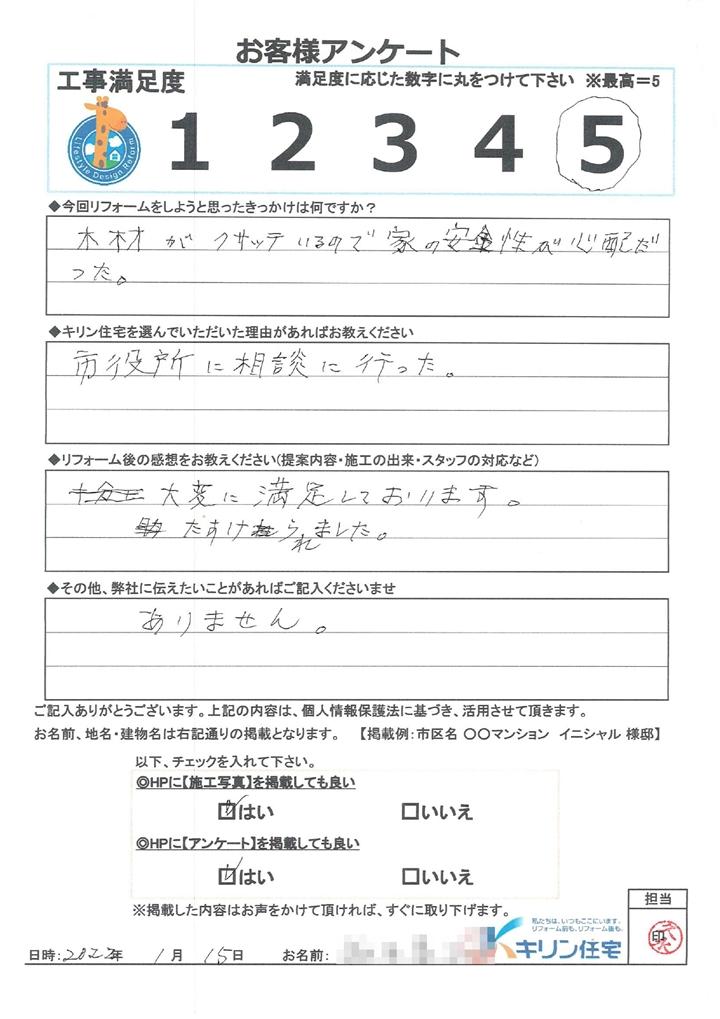 お客様アンケート
工事満足度
満足度に応じた数字に丸をつけて下さい ※最高=5
Lifestyle Design Reform
1 2 3 4 5
◆今回リフォームをしようと思ったきっかけは何ですか?
木材がクサッテいるので家の安全性が心配だ
った。
◆キリン住宅を選んでいただいた理由があればお教えください
市役所に相談に行った。
◆リフォーム後の感想をお教えください(提案内容・施工の出来・スタッフの対応など)
大変に満足しております。
たすけられました。
◆その他、弊社に伝えたいことがあればご記入くださいませ
ありません。
ご記入ありがとうございます。上記の内容は、個人情報保護法に基づき、活用させて頂きます。
お名前、地名・建物名は右記通りの掲載となります。 【掲載例:市区名 〇〇マンション イニシャル 様邸】
以下、チェックを入れて下さい。
◎HPに【施工写真】を掲載しても良い
☑はい □いいえ
◎HPに【アンケート】を掲載しても良い
☑はい □いいえ
※掲載した内容はお声をかけて頂ければ、すぐに取り下げます。
担当
印
私たちは、いつもここにいます。
リフォーム前も、リフォーム後も。
キリン住宅
日時:2022年 1月 15日 お名前: